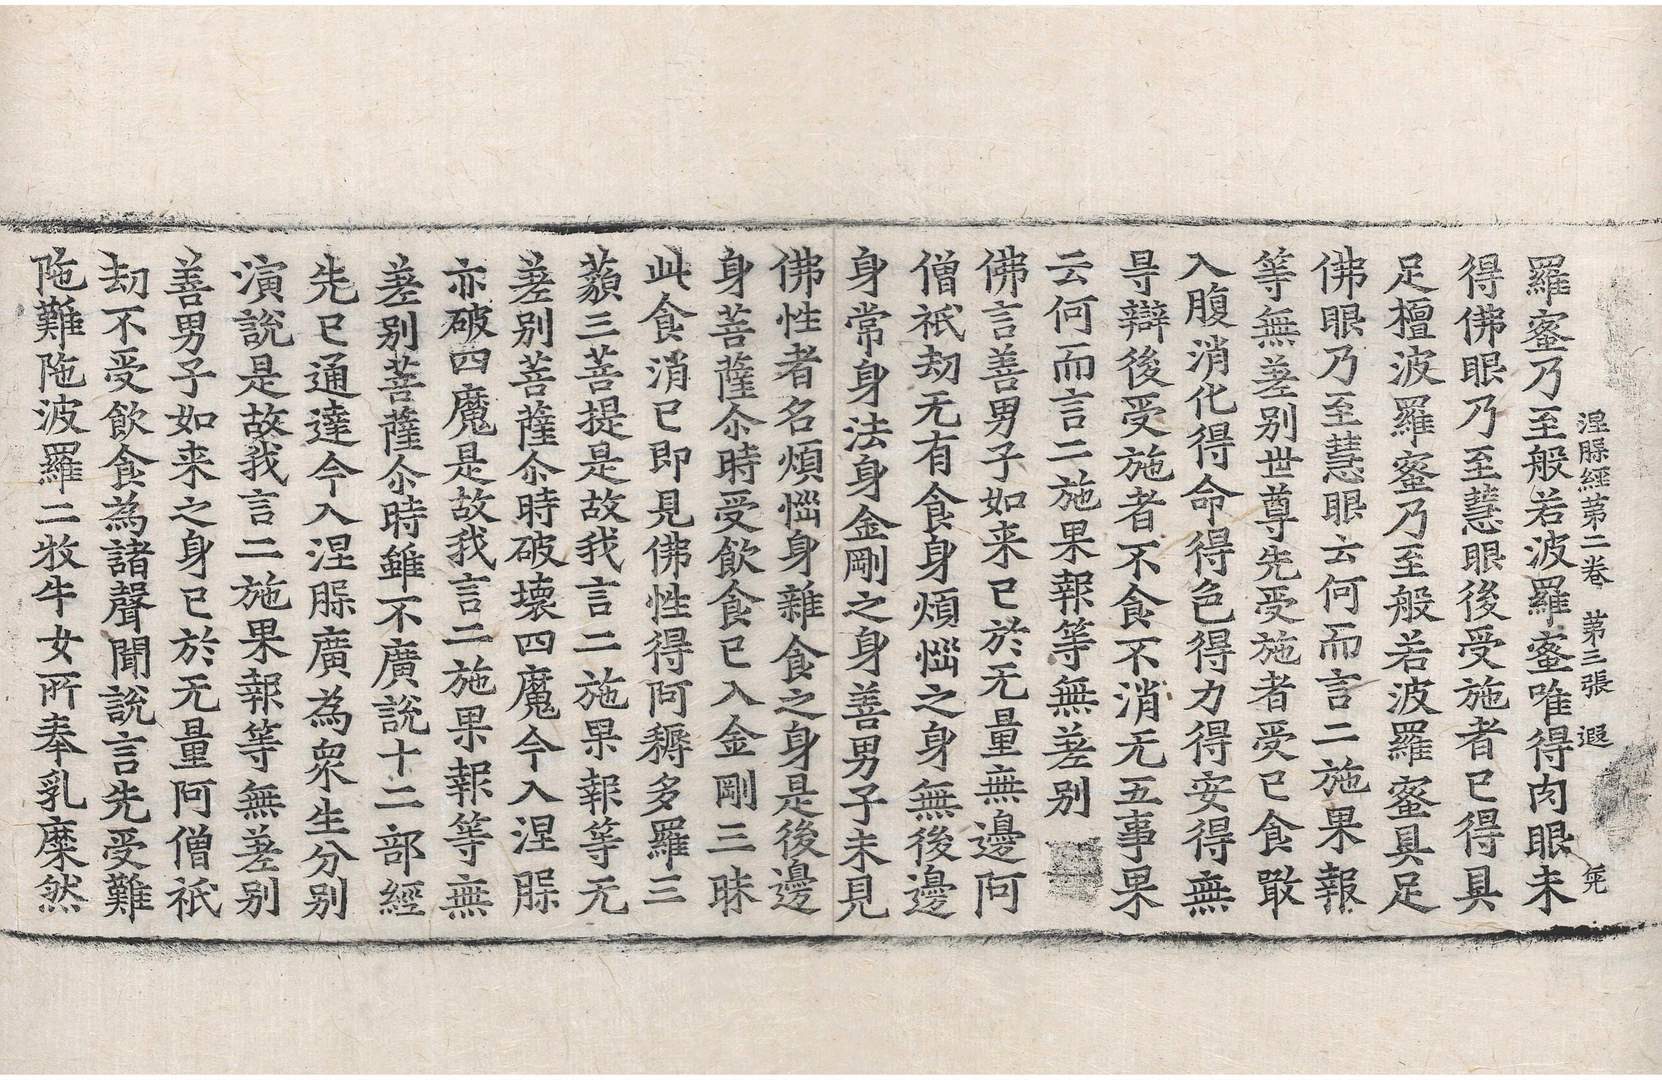 涅槃經第二卷 第三張 遐
羅蜜乃至般若波羅蜜唯得肉眼未
得佛眼乃至慧眼後受施者已得具
足檀波羅蜜乃至般若波羅蜜具足
佛眼乃至慧眼云何而言二施果報
等無差别世尊先受施者受已食噉
入腹消化得命得色得力得安得無
㝵辯後受施者不食不消无五事果
云何而言二施果報等無差别
佛言善男子如来已於无量無邊阿
僧祇劫无有食身煩惱之身無後邊
身常身法身金剛之身善男子未見
佛性者名煩惱身雜食之身是後邊
身菩薩尒時受飲食已入金剛三昧
此食消已即見佛性得阿耨多羅三
藐三菩提是故我言二施果報等无
差别菩薩尒時破壞四魔今入涅槃
亦破四魔是故我言二施果報等無
差别菩薩尒時雖不廣說十二部經
先已通達今入涅槃廣為衆生分别
演說是故我言二施果報等無差别
善男子如来之身已於无量阿僧祇
劫不受飲食為諸聲聞說言先受難
陁難陁波羅二牧牛女所奉乳糜然